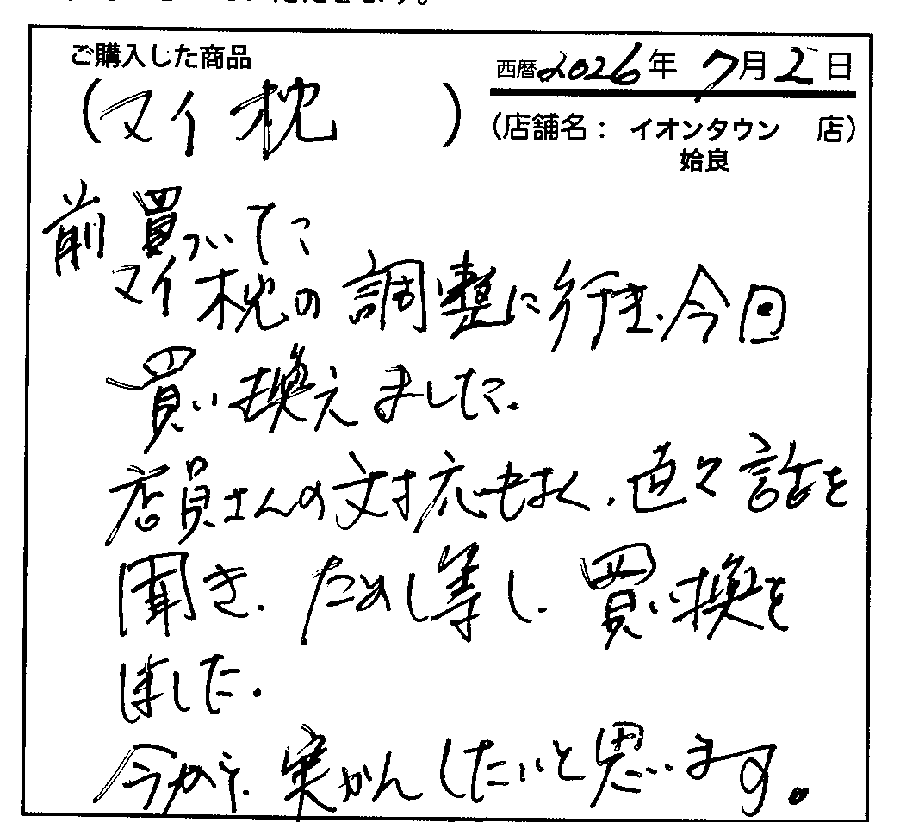 ご購入した商品
西暦2026年 7月2日
(マイ枕 )
(店舗名: イオンタウン 店)
姶良
前 買っいてた
マイ枕の調整に行き、今回
買い換えました。
店員さんの対応もよく、色々話を
聞き、ためし等し、買い換を
ました。
今から、実かんしたいと思います。